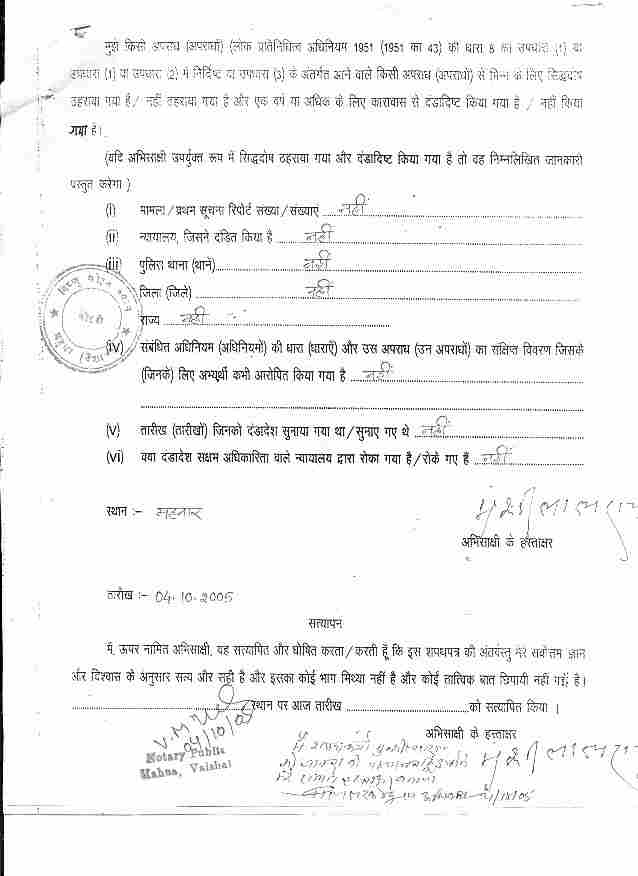 मुझे किसी अपराध (अपराधों) (लोक प्रतिनिधित्व अधिनियम 1951 (1951 का 43) की धारा 8 की उपधारा (1) या
उपधारा (1) या उपधारा (2) में निर्दिष्ट या उपधारा (3) के अंतर्गत आने वाले किसी अपराध (अपराधों) से भिन्न के लिए सिद्धदोष
ठहराया गया है / नहीं ठहराया गया है और एक वर्ष या अधिक के लिए कारावास से दंडादिष्ट किया गया है / नहीं किया
गया है।
(यदि अभिसाक्षी उपर्युक्त रूप में सिद्धदोष ठहराया गया और दंडादिष्ट किया गया है तो वह निम्नलिखित जानकारी
प्रस्तुत करेगा)
(i) मामला / प्रथम सूचना रिपोर्ट संख्या / संख्याएं नहीं
(ii) न्यायालय, जिसने दंडित किया है नहीं
(iii) पुलिस थाना (थाने) नहीं
जिला (जिले) नहीं
राज्य नहीं
(iv) संबंधित अधिनियम (अधिनियमों) की धारा (धाराएँ) और उस अपराध (उन अपराधों) का संक्षिप्त विवरण जिसके
(जिनके) लिए अभ्यर्थी कभी आरोपित किया गया है नहीं
(v) तारीख (तारीखों) जिनको दंडादेश सुनाया गया था / सुनाए गए थे नहीं
(vi) क्या दंडादेश सक्षम अधिकारिता वाले न्यायालय द्वारा रोका गया है / रोके गए हैं नहीं
स्थान :- महनार
अभिसाक्षी के हस्ताक्षर
तारीख :- 04-10-2005
सत्यापन
मैं, ऊपर नामित अभिसाक्षी, यह सत्यापित और घोषित करता / करती हूँ कि इस शपथपत्र की अंतर्वस्तु मेरे सर्वोत्तम ज्ञान
और विश्वास के अनुसार सत्य और सही है और इसका कोई भाग मिथ्या नहीं है और कोई तात्विक बात छिपायी नहीं गई है।
स्थान पर आज तारीख को सत्यापित किया ।
अभिसाक्षी के हस्ताक्षर
04/10/05
Notary Public
Mahna, Vaishal